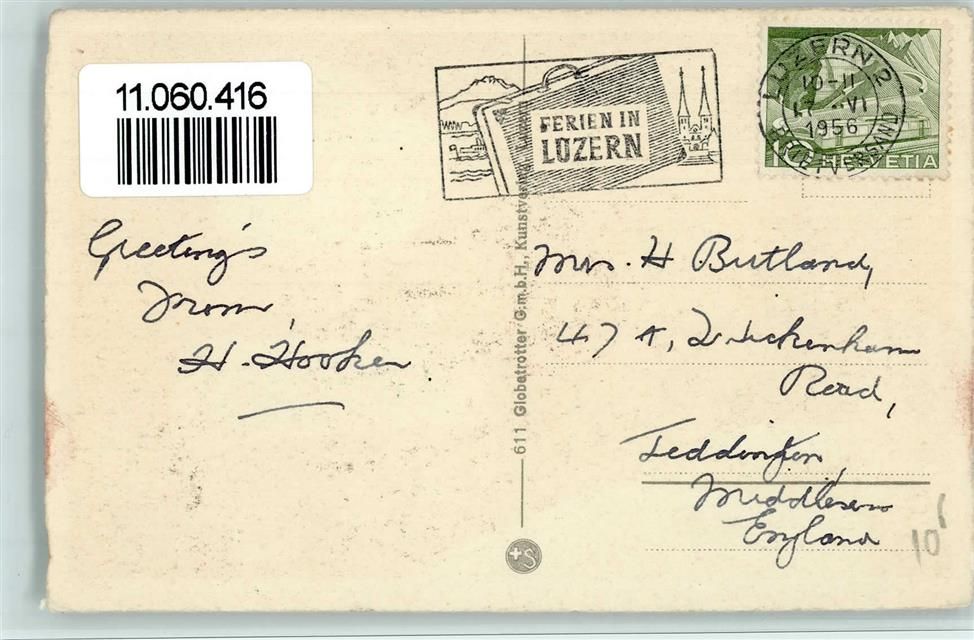 11.060.416
FERIEN IN
LUZERN
LUZERN 2
10-11
VI
1956
BRIEFVERSAND
10 HELVETIA
Greeting's
From,
H. Hooker
Mrs. H Butland,
47 A, Twickenham
Road,
Teddington,
Middlesex
England
611 Globetrotter G.m.b.H., Kunstverlag, Luzern
+S
10